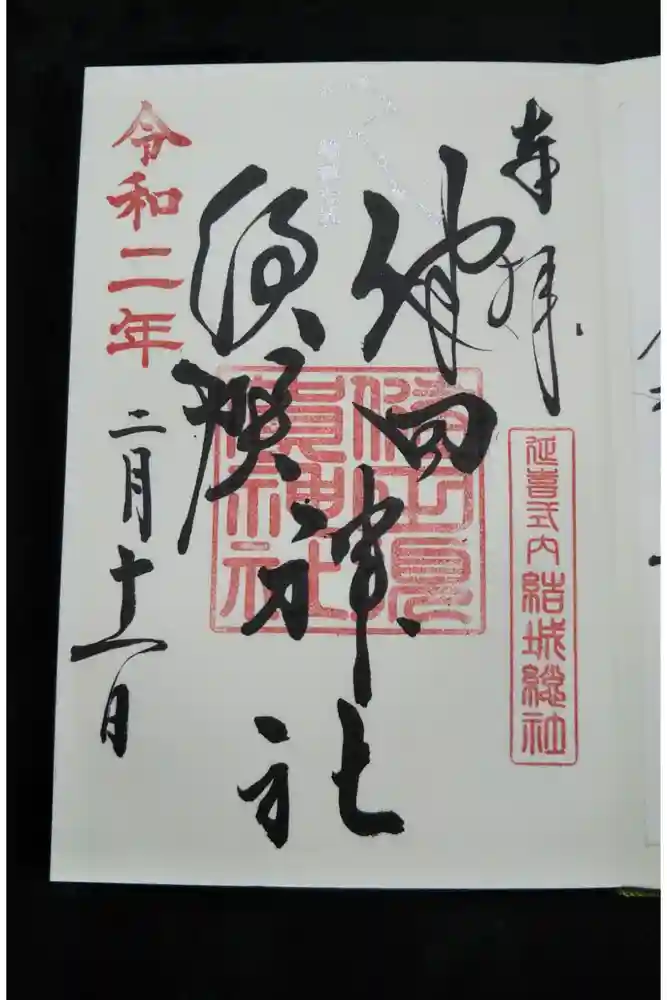 奉拝
延喜式内結城総社
健田
須賀
神社
健田須
賀神社
令和二年
二月十一日